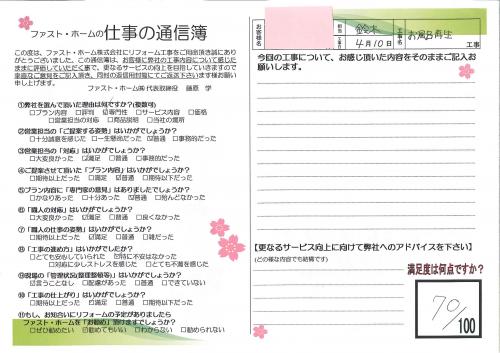 ファスト・ホームの仕事の通信簿
この度は、ファスト・ホーム株式会社にリフォーム工事をご用命頂き誠にあり
がとうございました。この通信簿は、お客様に弊社の工事内容について感じた
ままに評価していただく事で、更なるサービスの向上を目指していきますので
率直なご意見をご記入頂き、同封の返信用封筒にてご返送下さいます様お願い
申し上げます。
ファスト・ホーム㈱ 代表取締役 藤原 学
①弊社を選んで頂いた理由は何ですか?(複数可)
□プラン □評判 ☑専門性 □サービス内容 □価格
□営業担当の対応 □商品説明 □当社の雇用
②営業担当の「ご提案する姿勢」はいかがでしょうか?
□十分誠意を感じた □一生懸命だった ☑普通 □事務的だった
③営業担当の「対応」はいかがでしょうか?
□大変良かった ☑満足 □普通 □事務的だった
④ご提案させて頂いた「プラン内容」はいかがでしょうか?
□期待以上だった □満足 ☑普通 □期待以下だった
⑤プラン内容に「専門家の意見」はありましたでしょうか?
□かなりあった □十分あった ☑普通 □殆んどなかった
⑥「職人の対応」はいかがでしょうか?
□大変良かった ☑満足 □普通 □良くなかった
⑦「職人の仕事の姿勢」はいかがでしょうか?
□期待以上だった ☑満足 □普通 □雑だった
⑧「工事の進め方」はいかがでしたか?
□とても安心していられた ☑特に不安はなかった
□対応に少しストレスを感じた □とても不満を感じた
⑨現場の「管理状況(整理整頓等)」はいかがでしょうか?
☑言うことなし □配慮があった □普通 □できていない
⑩「工事の仕上がり」はいかがでしょうか?
□期待以上だった ☑満足 □普通 □期待以下だった
⑪もし、お知合いにリフォームの予定がありましたら
ファスト・ホームを「お勧め」頂けますでしょうか?
□ぜひ勧めたい ☑勧めてもいい □わからない □勧められない
お客様名
担当 鈴木
工事日 4月10日
工事名 お風呂再生 工事
今回の工事について、お感じ頂いた内容をそのままご記入お
願いします。
【更なるサービス向上に向けて弊社へのアドバイスを下さい】
(どの様な内容でも結構です)
満足度は何点ですか?
70/100